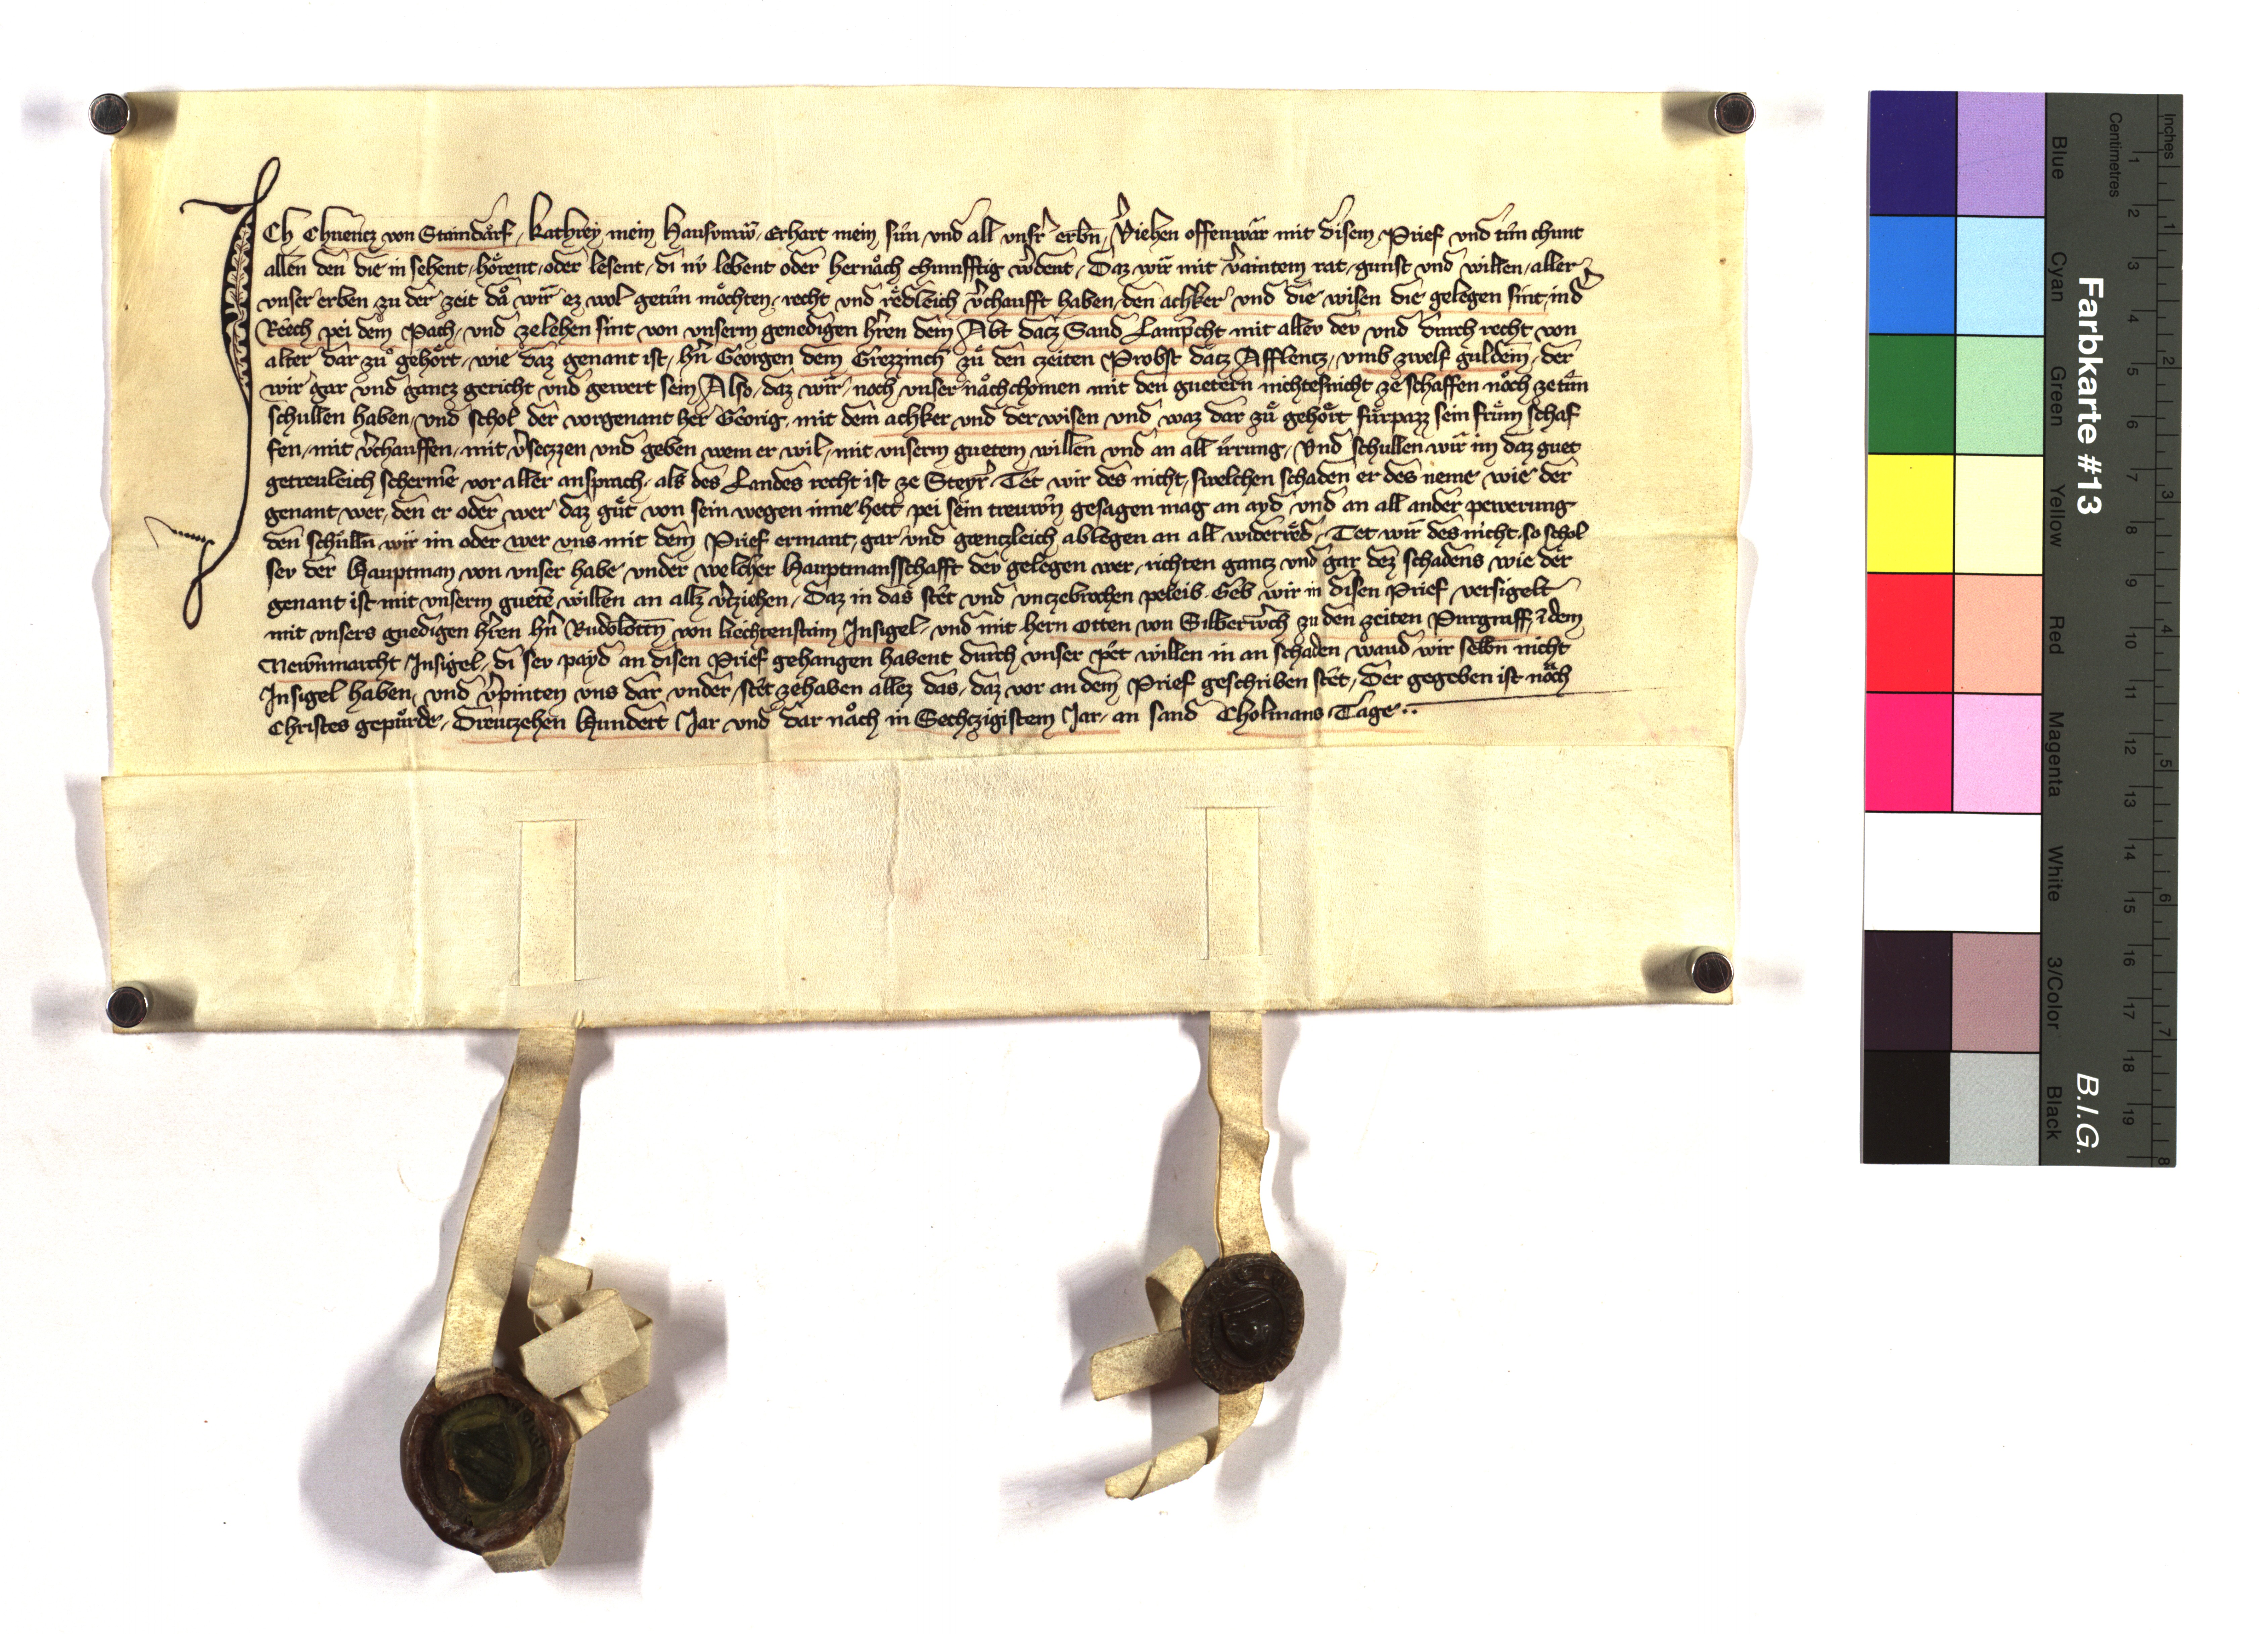 Ich Chuencz von Staindarf, Kathrey mein Hausvraw, Erhart mein sun, und all unsr erbn, Viehen offenwar mit disem Prief und tun chunt
allen den die in sehent, hörent, oder lesent, di nv lebent oder hernach chumfftig wdent, Daz wir mit vaintem rat, gunst und willen, aller
unser erben zu der zeit da wir ez wol getun möchten, recht und redleich vchaufft haben, den achker und die wisen die gelegen sint, in d
Reech pei dem Pach, und ze lehen sint von unserm genedigen hren dem Abt dacz Sand Lampcht mit aller dev und durch recht von
alter dar zu gehört, wie daz genant ist, hn Georgen dem Grezzinch zu den czeiten Probst dacz Afflencz, umb zwelf guldein, der
wir gar und gancz gericht und gewert sein, Also, daz wir, noch unser nachchomen mit den guetern nichtesnicht ze schaffen noch ze tun
schullen haben, und schol der vorgenant her Georig, mit dem achker und der wisen und waz dar zu gehört fürpazz sein frum schaf
fen, mit vchauffen, mit vseczzen und geben wem er wil, mit unserm guetem willen und an all irrung, Und schullen wir im daz guet
getreuleich scherme, vor aller ansprach, als des Landes recht ist ze Steyr, Tet wir des nicht, swelchen schaden er des neme wie der
genant wer, den er oder wer daz gut von sein wegen inne hett pei sein treuwn gesagen mag an ayd und an all ander pewerung
den schulln wir im oder wer uns mit dem Prief ermant, gar und gænczleich ablegen an all widerred, Tet wir des nicht, so schol
sev der Hauptman von unser habe under welcher Hauptmansschafft dev gelegen wer, richten gancz und gar dez schadens wie der
genant ist mit unserm guete willen an allz vcziehen, Daz in das stet und unczebrochen peleib, Geb wir in disen Prief versigelt
mit unsers gnedigen hren hn Rudolotten von Liechtenstain Insigel, und mit hern Otten von Silberwch zu den zeiten Purgraff, i dem
Newnmarcht Insigel, di sev payd an disen Prief gehangen habent durch unser pet willen in an schaden wand wir selbn nicht
Insigel haben, und vpinten uns dar under, stet ze haben allez das, daz vor an dem Prief geschriben stet, Der gegeben ist nach
Christes gepurde, Dreuczehen Hundert Jar und dar nach in Sechtzigistem Jar, an sand Cholmans Tage..
Farbkarte #13
B.I.G.
Blue Cyan Green Yellow Red Magenta White 3/Color Black
Centimetres 1 2 3 4 5 6 7 8 9 10 11 12 13 14 15 16 17 18 19
Inches 1 2 3 4 5 6 7 8